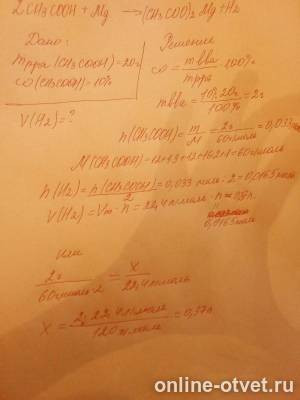 2CH₃COOH + Mg → (CH₃COO)₂Mg + H₂
Дано:
mр-ра (CH₃COOH) = 20г
ω(CH₃COOH) = 10%
V(H₂) = ?
Решение
ω = mвва / mрра · 100%
mвва = 10·20г / 100% = 2г
n(CH₃COOH) = m / M = 2г / 60г/моль = 0,033
M(CH₃COOH) = 12+1·3+12+16·2+1 = 60г/моль
n(H₂) = n(CH₃COOH) / 2 = 0,033 моль : 2 = 0,0165 моль
V(H₂) = Vm · n = 22,4 л/моль ·
0,0165 моль
или
2г / 60г/моль·2 = x / 22,4 л/моль
X = 2г · 22,4 л/моль / 120 г/моль = 0,37л
online-otvet.ru